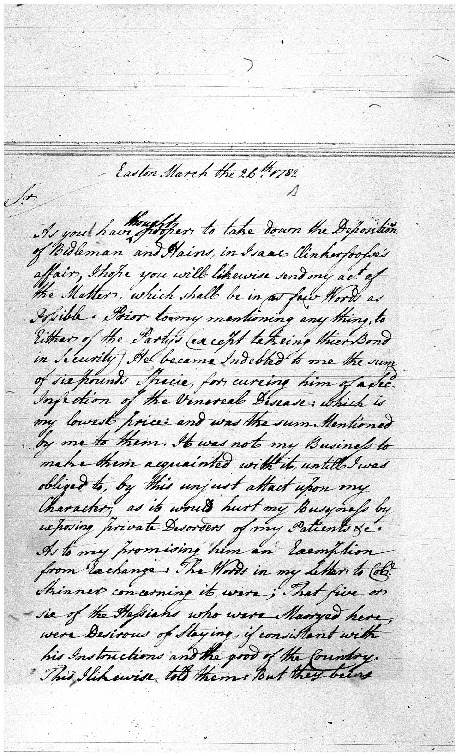 Easton March the 26th. 1782
Sir,
As you have thought proper to take down the Deposition
of Bidleman and Hains, in Isaac Clinkerfoofe's
affair, I hope you will likewise send my act of
the Matter, which shall be in as few Words as
Possible. Prior to my mentioning any thing, to
Either of the Partys (except takeing thier Bond
in Security) He became Indebted to me the sum
of six pounds Specie, for cureing him of a Sec.
Infection of the Venereal Disease; which is
my lowest price: and was the sum Mentioned
by me to them. It was not my Business to
make them acquainted with it, untill I was
obliged to, by this unjust attact upon my
Character, as it would hurt my Busyness by
exposing private Disorders of my Patients &c.
As to my promising him an Exemption
from Exchange. The Words in my Letter to Colo.
Skinner concerning it were; That five or
six of the Hessians who were Marryed here,
were Desirous of Staying, if consistant with
his Instructions and the good of the Country.
This, I likewise told them: But they being